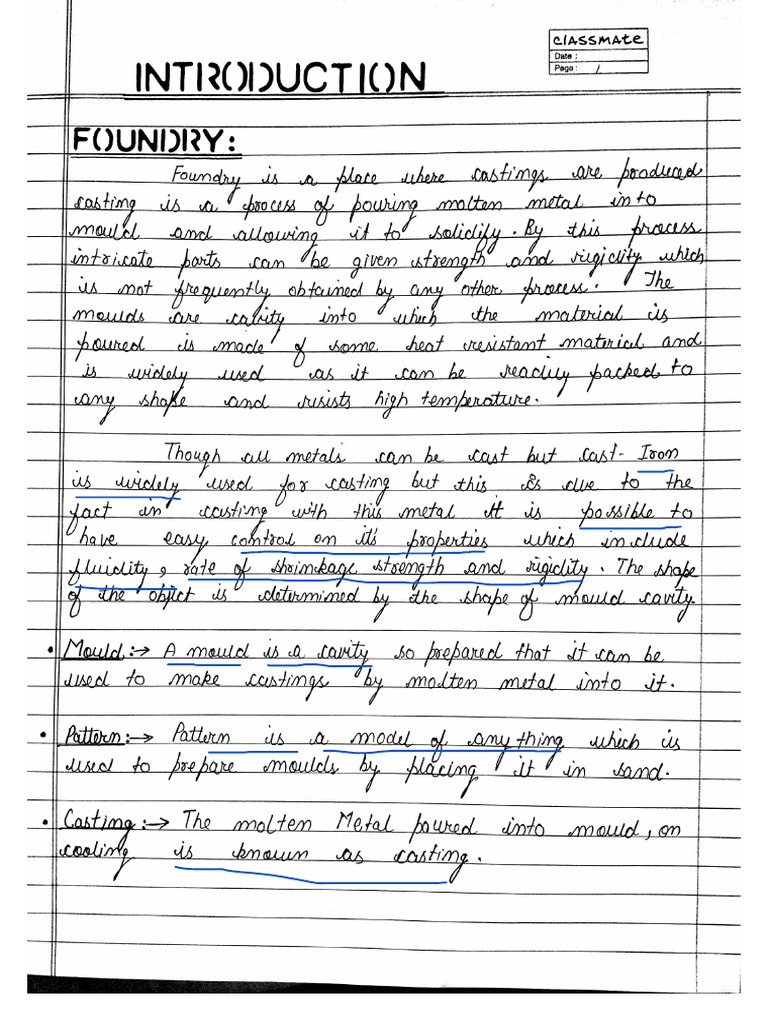 classmate
Date :
Page : 1
INTRODUCTION
FOUNDRY:
Foundry is a place where castings are produced
casting is a process of pouring molten metal into
mould and allowing it to solidify. By this process
intricate parts can be given strength and rigidity which
is not frequently obtained by any other process. The
moulds are cavity into which the material is
poured is made of some heat resistant material and
is widely used as it can be readily packed to
any shape and resists high temperature.
Though all metals can be cast but cast-Iron
is widely used for casting but this is due to the
fact in casting with this metal it is possible to
have easy control on it's properties which include
fluidity, rate of shrinkage strength and rigidity. The shape
of the object is determined by the shape of mould cavity.
• Mould:→ A mould is a cavity so prepared that it can be
used to make castings by molten metal into it.
• Pattern:→ Pattern is a model of any thing which is
used to prepare moulds by placing it in sand.
• Casting:→ The molten Metal poured into mould, on
cooling is known as casting.